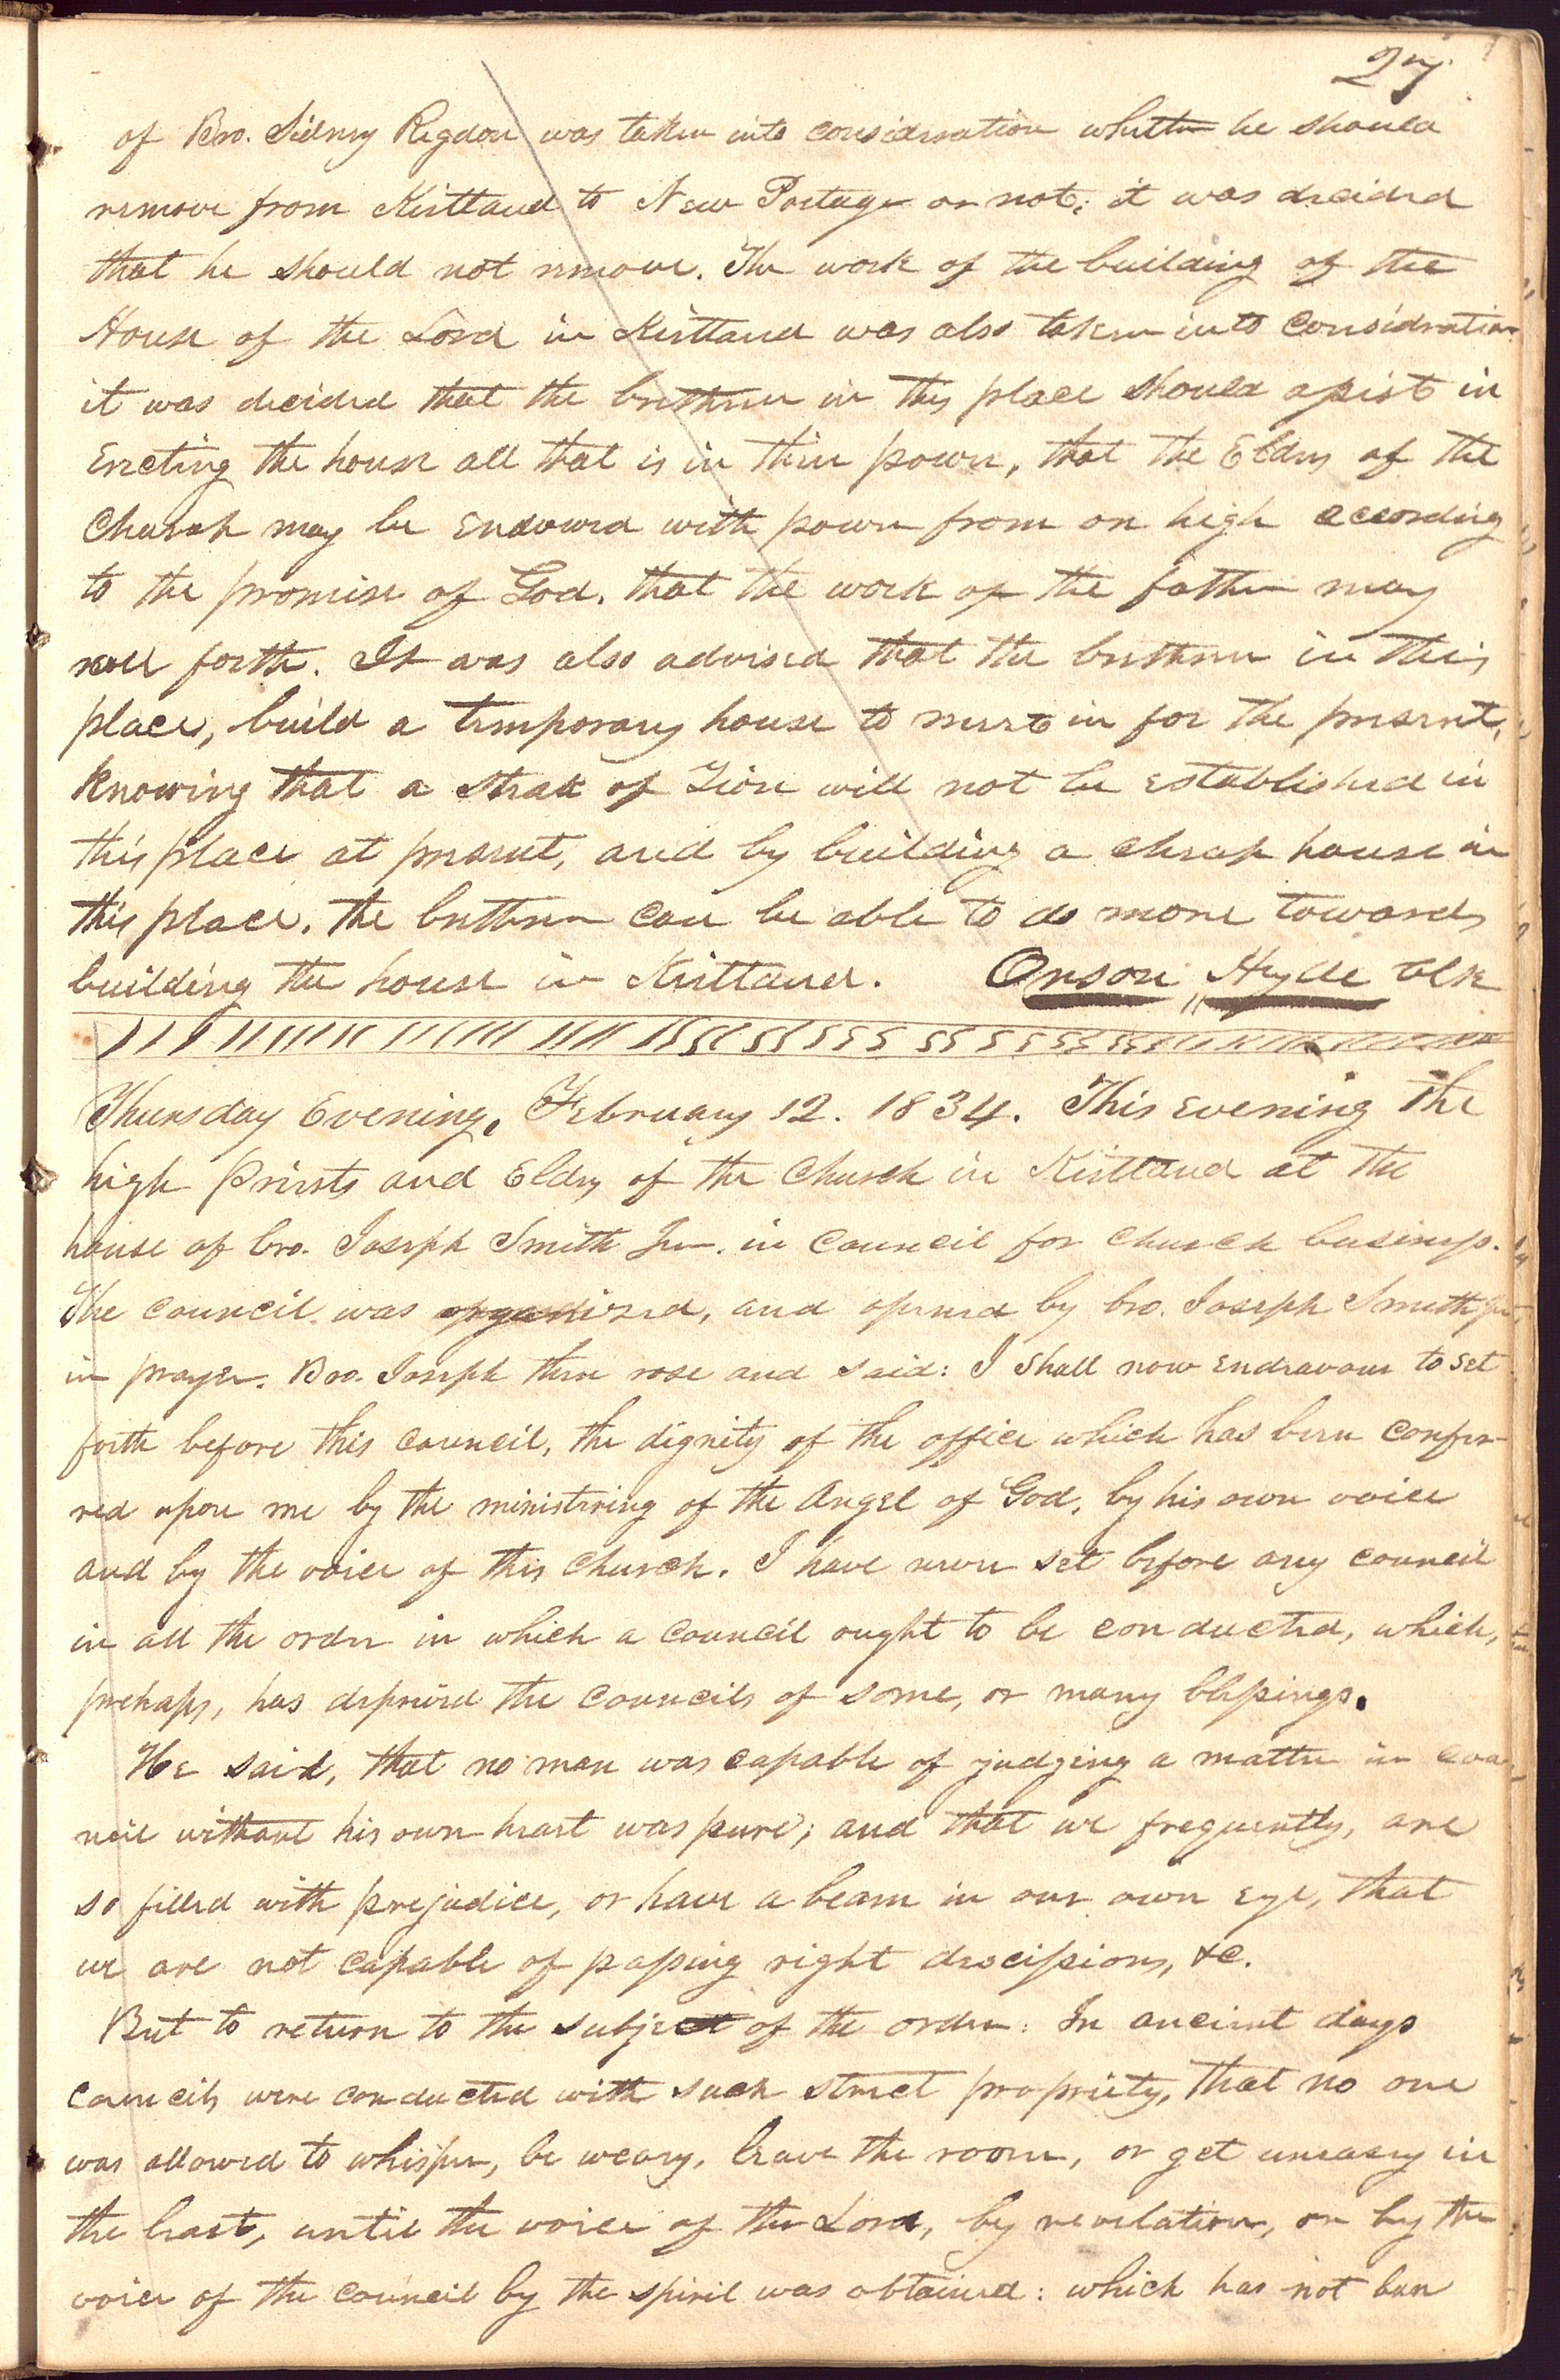 27
of Bro. Sidney Rigdon was taken into consideration whether he should
remove from Kirtland to New Portage or not; it was decided
that he should not remove. The work of the building of the
House of the Lord in Kirtland was also taken into consideration
it was decided that the brethren in this place should assist in
erecting the house all that is in thier power, that the Elders of the
Church may be endowed with power from on high according
to the promise of God. that the work of the father may
roll forth. It was also advised that the brethren in this
place, build a temporary house to meet in for the present,
knowing that a Steak of Zion will not be established in
this place at present, and by building a cheap house in
this place. the brethren can be able to do more towards
building the house in Kirtland. Orson Hyde Clk
Thursday Evening, February 12. 1834. This evening the
high Priests and Elders of the Church in Kirtland at the
house of bro. Joseph Smith Jun. in Council for Church business.
The council was organized, and opened by bro. Joseph Smith Jun.
in prayer. Bro. Joseph then rose and said: I shall now endeavour to set
forth before this council, the dignity of the office which has been confer-
red upon me by the ministering of the Angel of God, by his own voice
and by the voice of this Church. I have never set before any council
in all the order in which a Council ought to be conducted, which,
prehaps, has deprived the Councils of some, or many blessings.
He said, that no man was capable of judging a matter in coun-
cil without his own heart was pure; and that we frequently, are
so filled with prejudice, or have a beam in our own eye, that
we are not capable of passing right descissions, &c.
But to return to the subject of the order: In ancient days
councils were conducted with such strict propriety, that no one
was allowed to whisper, be weary, leave the room, or get uneasy in
the least, until the voice of the Lord, by revelation, or by the
voice of the council by the spirit was obtained: which has not been